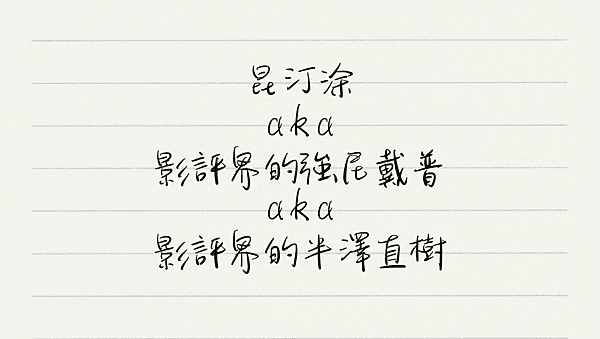 昆汀涂
aka
影評界的強尼戴普
aka
影評界的半澤直樹